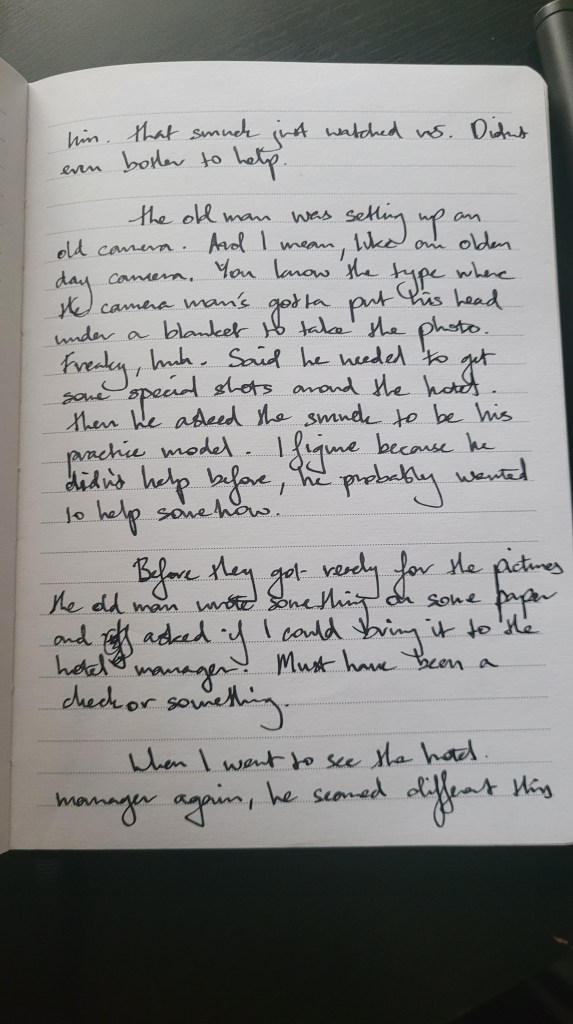 him. That smuck just watched us. Didn't
even bother to help.
The old man was setting up an
old camera. And I mean, like an olden
day camera. You know the type where
the camera man's gotta put his head
under a blanket to take the photo.
Freaky, huh. Said he needed to get
some special shots around the hotel.
Then he asked the smuck to be his
practice model. I figure because he
didn't help before, he probably wanted
to help somehow.
Before they got ready for the pictures
the old man wrote something on some paper
and asked if I could bring it to the
hotel manager. Must have been a
check or something.
When I went to see the hotel
manager again, he seemed different this